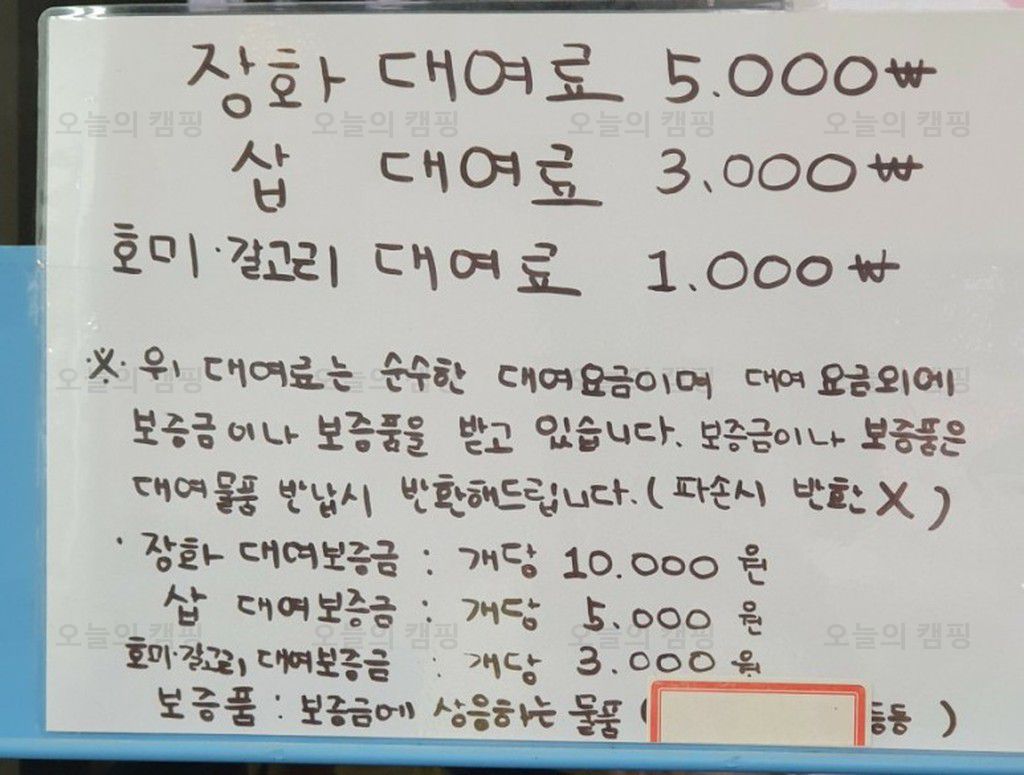 장화 대여료 5.000₩
삽 대여료 3.000₩
호미·갈고리 대여료 1.000₩
※ 위 대여료는 순수한 대여요금이며 대여 요금외에
보증금이나 보증품을 받고 있습니다. 보증금이나 보증품은
대여물품 반납시 반환해드립니다. (파손시 반환 X)
· 장화 대여보증금 : 개당 10.000 원
삽 대여보증금 : 개당 5.000 원
호미·갈고리, 대여보증금 : 개당 3.000 원
보증품 : 보증금에 상응하는 물품 ( 등등 )
오늘의 캠핑 오늘의 캠핑 오늘의 캠핑 오늘의 캠핑
오늘의 캠핑 오늘의 캠핑 오늘의 캠핑 오늘의 캠핑
오늘의 캠핑 오늘의 캠핑 오늘의 캠핑 오늘의 캠핑